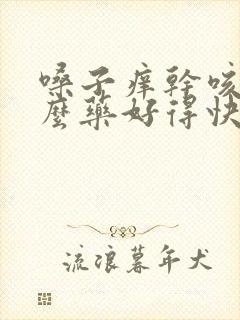 嗓子痒幹咳
麼藥好得快
流浪暮年犬